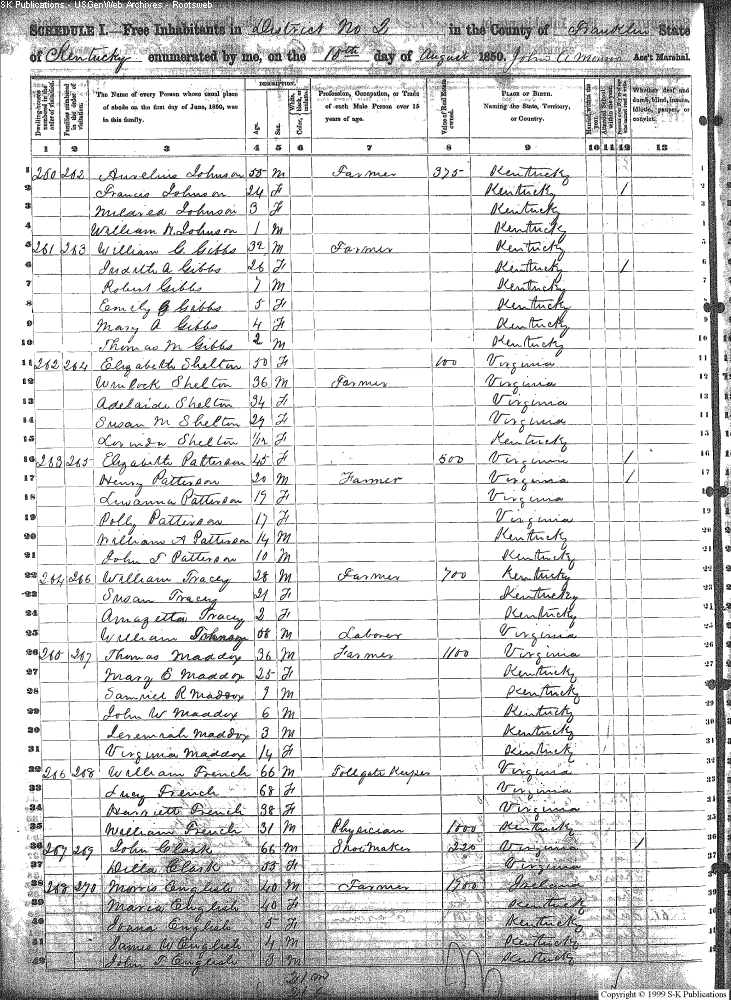 SK Publications - USGenWeb Archives - Rootsweb
SCHEDULE I.—Free Inhabitants in District No 2 in the County of Franklin State
of Kentucky enumerated by me, on the 10th day of August 1850, John A Monroe Ass't Marshal.
DESCRIPTION.
Dwelling-houses numbered in the order of visitation.
Families numbered in the order of visitation.
The Name of every Person whose usual place of abode on the first day of June, 1850, was in this family.
Age.
Sex.
Color, White, black, or mulatto.
Profession, Occupation, or Trade of each Male Person over 15 years of age.
Value of Real Estate owned.
PLACE OF BIRTH. Naming the State, Territory, or Country.
Married within the year.
Whether deaf and dumb, blind, insane, idiotic, pauper, or convict.
1 2 3 4 5 6 7 8 9 10 11 12 13
1 260 262 Aurelius Johnson 55 M Farmer 375 Kentucky 1
2 Francis Johnson 24 F Kentucky / 2
3 Mildred Johnson 3 F Kentucky 3
4 William H Johnson 1 M Kentucky 4
5 261 263 William G. Gibbs 32 M Farmer Kentucky 5
6 Judith A Gibbs 26 F Kentucky / 6
7 Robert Gibbs 7 M Kentucky 7
8 Emily G Gibbs 5 F Kentucky 8
9 Mary A Gibbs 4 F Kentucky 9
10 Thomas M Gibbs 2 M Kentucky 10
11 262 264 Elizabeth Shelton 50 F 600 Virginia 11
12 Shelton 36 M Farmer Virginia 12
13 Adelaide Shelton 34 F Virginia 13
14 Susan M Shelton 29 F Virginia 14
15 Shelton 1/12 F Kentucky 15
16 263 265 Elizabeth Patterson 45 F 500 Virginia / 16
17 Henry Patterson 20 M Farmer Virginia / 17
18 Luvanna Patterson 19 F Virginia 18
19 Polly Patterson 17 F Virginia 19
20 William A Patterson 14 M Kentucky 20
21 John T Patterson 10 M Kentucky 21
22 264 266 William Tracey 28 M Farmer 700 Kentucky 22
23 Susan Tracey 21 F Kentucky 23
24 Amazetta Tracey 2 F Kentucky 24
25 William 58 M Laborer Virginia 25
26 265 267 Thomas Maddox 36 M Farmer 1100 Virginia 26
27 Mary E Maddox 25 F Kentucky 27
28 Samuel R Maddox 9 M Kentucky 28
29 John W Maddox 6 M Kentucky 29
30 Jeremiah Maddox 3 M Kentucky 30
31 Virginia Maddox 14 F Kentucky 31
32 266 268 William French 66 M Tollgate Keeper Virginia 32
33 Lucy French 68 F Virginia 33
34 Harriett French 38 F Virginia 34
35 William French 31 M Physician 1000 Kentucky 35
36 267 269 John Clark 66 M Shoemaker 225 Virginia / 36
37 Dilla Clark 55 F Virginia
38 268 270 Morris English 40 M Farmer 1500 Ireland
39 Maria English 40 F Kentucky
40 Joana English 5 F Kentucky
41 James W English 4 M Kentucky
42 John T English 3 M Kentucky
Copyright © 1999 S-K Publications